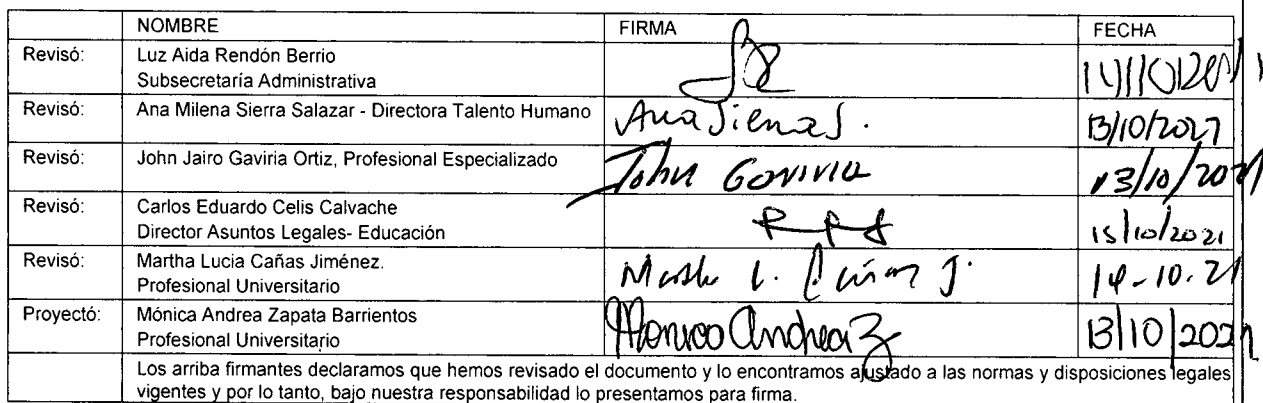 NOMBRE FIRMA FECHA
Revisó: Luz Aida Rendón Berrio
Subsecretaría Administrativa
14/10/2021
Revisó: Ana Milena Sierra Salazar - Directora Talento Humano Ana Sierra S. 13/10/2021
Revisó: John Jairo Gaviria Ortiz, Profesional Especializado John Gaviria 13/10/2021
Revisó: Carlos Eduardo Celis Calvache
Director Asuntos Legales- Educación
15/10/2021
Revisó: Martha Lucia Cañas Jiménez.
Profesional Universitario
Martha L. Cañas J. 14-10.21
Proyectó: Mónica Andrea Zapata Barrientos
Profesional Universitario
Monica Andrea Z 13/10/2021
Los arriba firmantes declaramos que hemos revisado el documento y lo encontramos ajustado a las normas y disposiciones legales
vigentes y por lo tanto, bajo nuestra responsabilidad lo presentamos para firma.